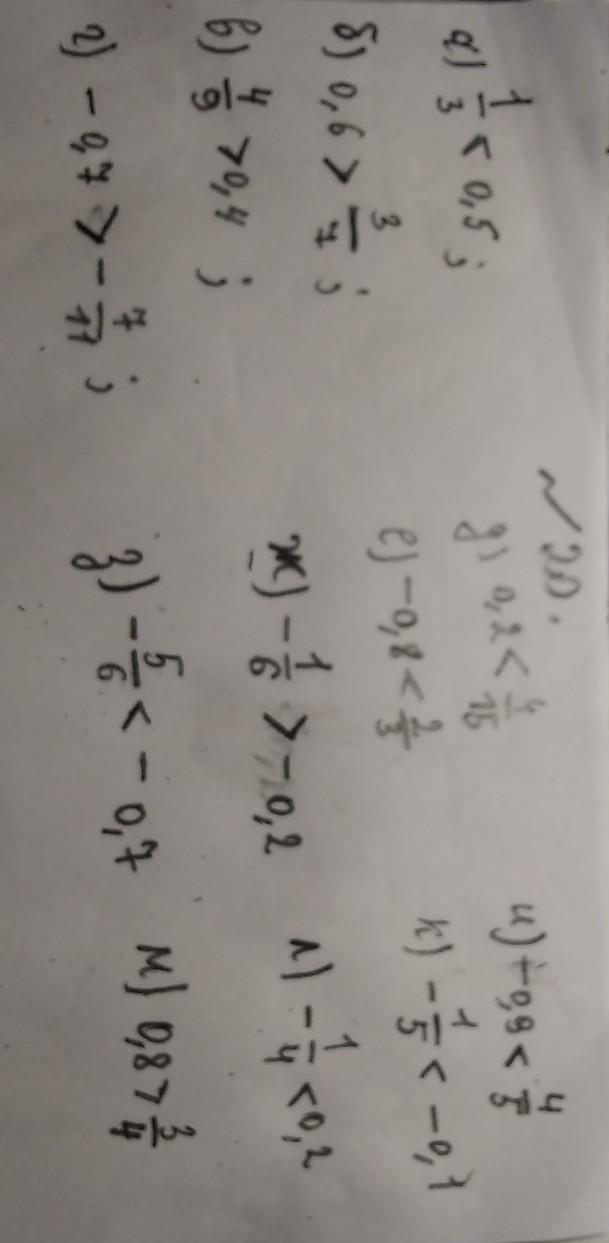 №20.
а) 1/3 < 0,5;
б) 0,6 > 3/7;
в) 4/9 > 0,4;
г) -0,7 > -7/11;
д) 0,2 < 4/15
е) -0,8 < 2/3
ж) -1/6 > -0,2
з) -5/6 < -0,7
и) -0,9 < 4/5
к) -1/5 < -0,1
л) -1/4 < 0,2
м) 0,8 > 3/4